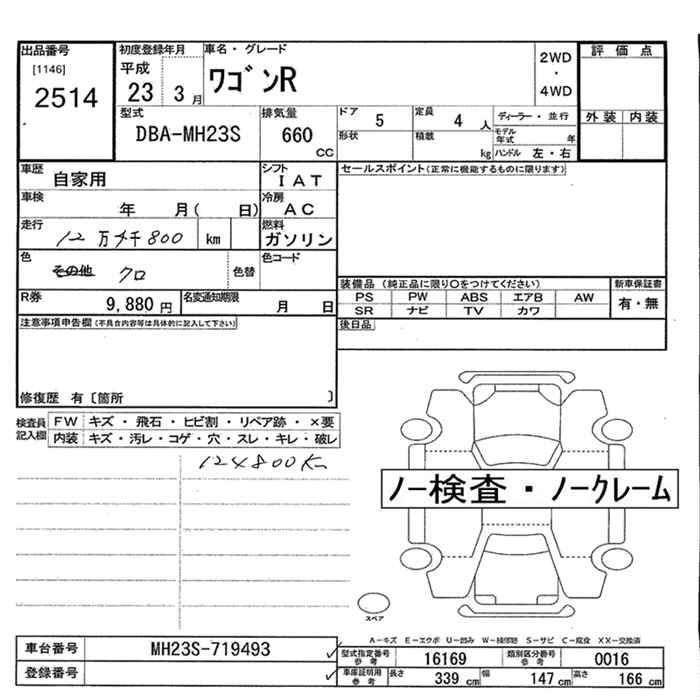 出品番号
[1146]
2514
初度登録年月
平成
23 3 月
車名・グレード
ワゴンR
2WD
・
4WD
評価点
外装 内装
型式
DBA-MH23S
排気量
660
CC
ドア 5
定員 4 人
形状
積載 kg
ディーラー・並行
モデル年式 年
ハンドル 左・右
車歴
自家用
シフト
IAT
車検
年 月( 日)
冷房
AC
走行
12万4千800 km
燃料
ガソリン
色
その他 クロ
色替
色コード
R券
9,880 円
名変通知期限
月 日
セールスポイント(正常に機能するものに限ります)
装備品 (純正品に限り○をつけてください)
PS PW ABS エアB AW
SR ナビ TV カワ
新車保証書
有・無
後日品
注意事項申告欄(不具合内容等は具体的に記入して下さい)
修復歴 有〔箇所 〕
検査員記入欄
FW キズ・飛石・ヒビ割・リペア跡・×要
内装 キズ・汚レ・コゲ・穴・スレ・キレ・破レ
124800Km
ノー検査・ノークレーム
スペア
A-キズ E-エクボ U-凹み W-補修跡 S-サビ C-腐食 XX-交換済
車台番号 MH23S-719493
登録番号
型式指定番号 参考 16169
類別区分番号 参考 0016
車庫証明用 参考
長さ 339 cm 幅 147 cm 高さ 166 cm